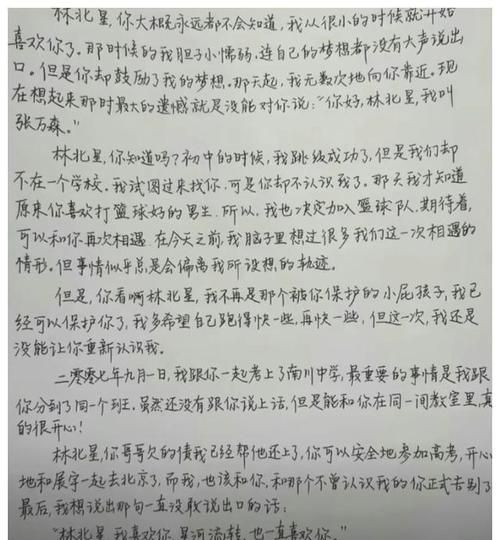 林北星,你大概永远都不会知道,我从很小的时候就开始
喜欢你了。那时候的我胆子小懦弱,连自己的梦想都没有大声说出
口。但是你却鼓励了我的梦想。那天起,我无数次地向你靠近。现
在想起来那时最大的遗憾就是没能对你说:“你好,林北星,我叫
张万森。”
林北星,你知道吗?初中的时候,我跳级成功了,但是我们却
不在一个学校。我试图过来找你,可是你却不认识我了。那天我才知道
原来你喜欢打篮球好的男生。所以,我也决定加入篮球队,期待着,
可以和你再次相遇.在今天之前,我脑子里想过很多我们这一次相遇的
情形。但事情似乎总是会偏离我所设想的轨迹。
但是,你看啊林北星,我不再是那个被你保护的小屁孩子,我已
经可以保护你了,我多希望自己跑得快一些,再快一些,但这一次,我还是
没能让你重新认识我。
二零零七年九月一日,我跟你一起考上了南川中学,最重要的事情是我跟
你分到了同一个班。虽然还没有跟你说上话,但是能和你在同一间教室里,真
的很开心!
林北星,你哥哥欠的债我已经帮他还上了,你可以安全地参加高考,开心
地和展宇一起去北京了,而我,也该和你,和那个不曾认识我的你正式告别了
最后,我想说出那句一直没敢说出口的话:
“林北星,我喜欢你,星河流转,也一直喜欢你。”